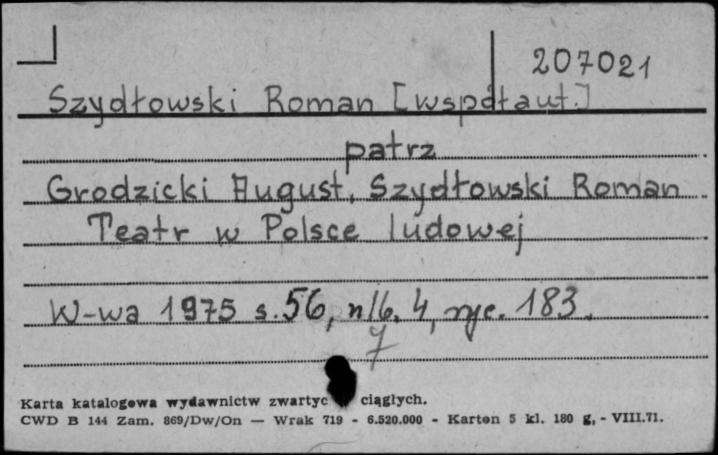 207021
Szydłowski Roman [współaut.]
patrz
Grodzicki August, Szydłowski Roman
Teatr w Polsce ludowej
W-wa 1975 s. 56, nlb. 4, ryc. 183.
7
Karta katalogowa wydawnictw zwartyc ciągłych.
CWD B 144 Zam. 869/Dw/On — Wrak 719 - 6.520.000 - Karton 5 kl. 180 g, - VIII.71.